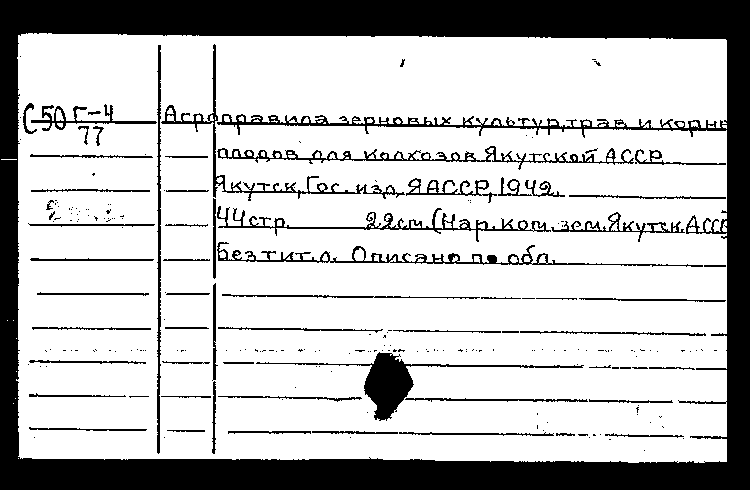 С50 Г-4 Агроправила зерновых культур, трав и корне
77 плодов для колхозов Якутской АССР.
Якутск, Гос. изд. ЯАССР, 1942.
44 стр. 22 см. (Нар. ком. зем. Якутск. АССР
Без тит. л. Описано по обл.